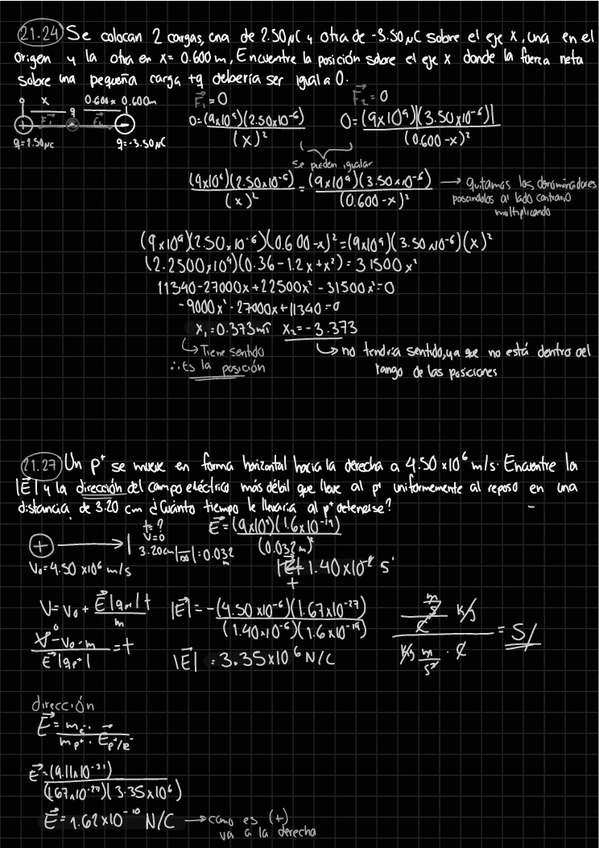 21.24 Se colocan 2 cargas, una de 2.50μC y otra de -3.50μC sobre el eje X, una en el
origen y la otra en x= 0.600m, Encuentre la posición sobre el eje x donde la fuerza neta
sobre una pequeña carga +q debería ser igual a 0.
x 0.600-x 0.600m
F₁ q F₂
q=1.50μC q=-3.50μC
F₁=0 F₂=0
0=(9x10⁹)(2.50x10⁻⁶)/(x)² 0=(9x10⁹)(3.50x10⁻⁶)/(0.600-x)²
Se pueden igualar
(9x10⁹)(2.50x10⁻⁶)/(x)² = (9x10⁹)(3.50x10⁻⁶)/(0.600-x)² → quitamos los denominadores
pasandolos al lado contrario
multiplicando
(9x10⁹)(2.50x10⁻⁶)(0.600-x)²=(9x10⁹)(3.50x10⁻⁶)(x)²
(2.2500x10⁴)(0.36-1.2x+x²)=31500x²
11340-27000x+22500x²-31500x²=0
-9000x²-27000x+11340=0
x₁=0.373m x₂=-3.373
↳ Tiene sentido ↳ no tendría sentido, ya que no está dentro del
∴ Es la posición rango de las posiciones
21.27 Un p⁺ se mueve en forma horizontal hacia la derecha a 4.50 x10⁶ m/s. Encuentre la
|E| y la dirección del campo eléctrico más débil que lleve al p⁺ uniformemente al reposo en una
distancia de 3.20 cm ¿Cuánto tiempo le llevaría al p⁺ detenerse?
t=? V=0
3.20cm = 0.032 m
V₀=4.50 x10⁶ m/s
E=(9x10⁹)(1.6x10⁻¹⁹)/(0.032m)²
1.40x10⁻⁸ s
V=V₀ + E|qₚ|t/m
V-V₀·m/E|qₚ⁺| = t
|E|=-(4.50x10⁻⁶)(1.67x10⁻²⁷)/(1.40x10⁻⁶)(1.6x10⁻¹⁹)
|E| = 3.35x10⁶ N/C
= s/
dirección
E=-(9.11x10⁻³¹)/(1.67x10⁻²⁷)(3.35x10⁶)
E=1.62x10⁻¹⁰ N/C → como es (+)
va a la derecha